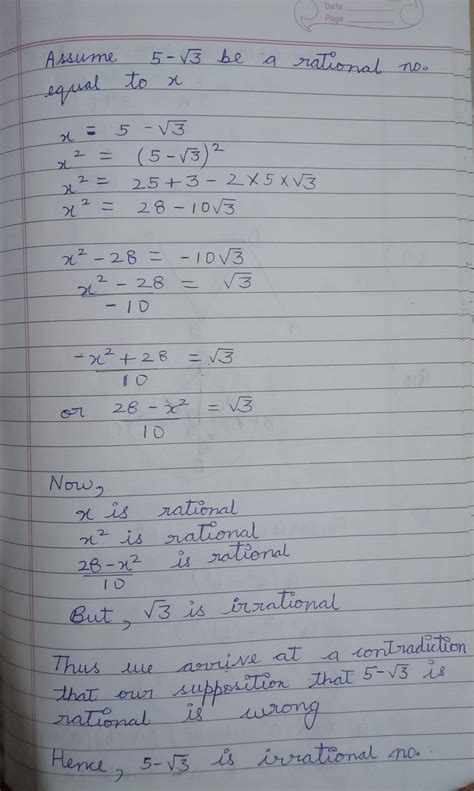 Date
Page
Assume 5-√3 be a rational no.
equal to x
x = 5 - √3
x² = (5-√3)²
x² = 25 + 3 - 2 × 5 × √3
x² = 28 - 10√3
x² - 28 = -10√3
x² - 28 = √3
-10
-x² + 28 = √3
10
or 28 - x² = √3
10
Now,
x is rational
x² is rational
28 - x² is rational
10
But, √3 is irrational
Thus we arrive at a contradiction
that our supposition that 5-√3 is
rational is wrong
Hence, 5-√3 is irrational no.